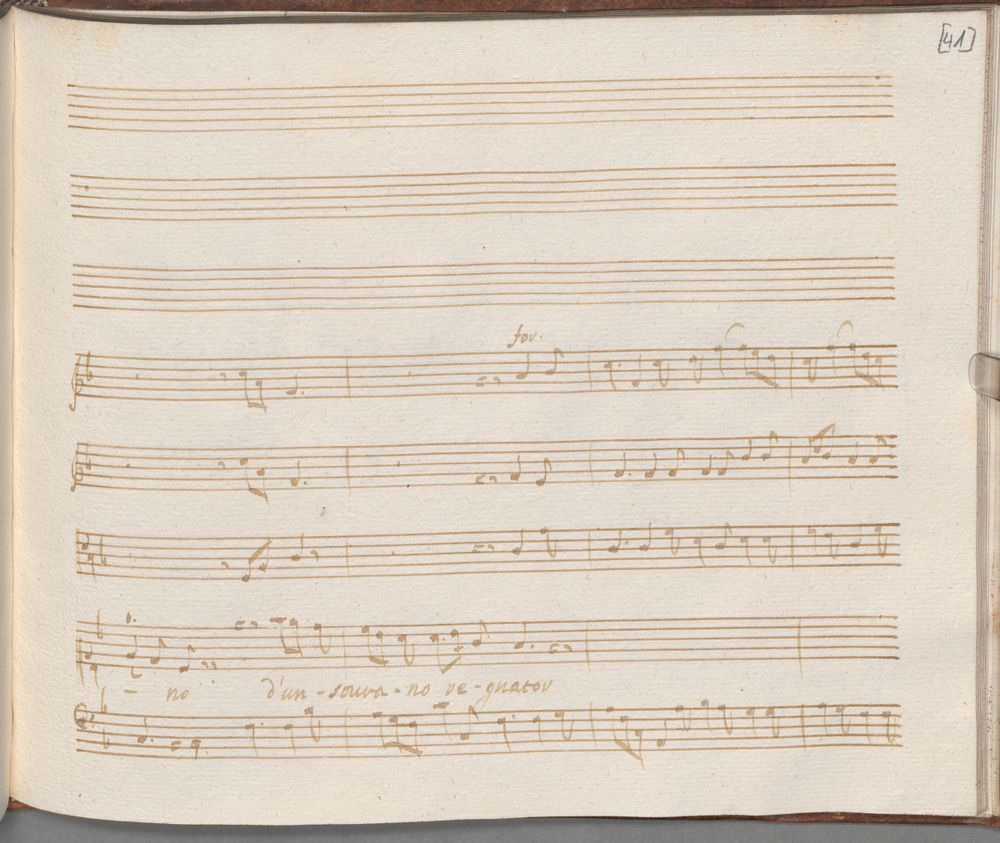 [41]
for.
- no d'un - sovra - no re - gnator